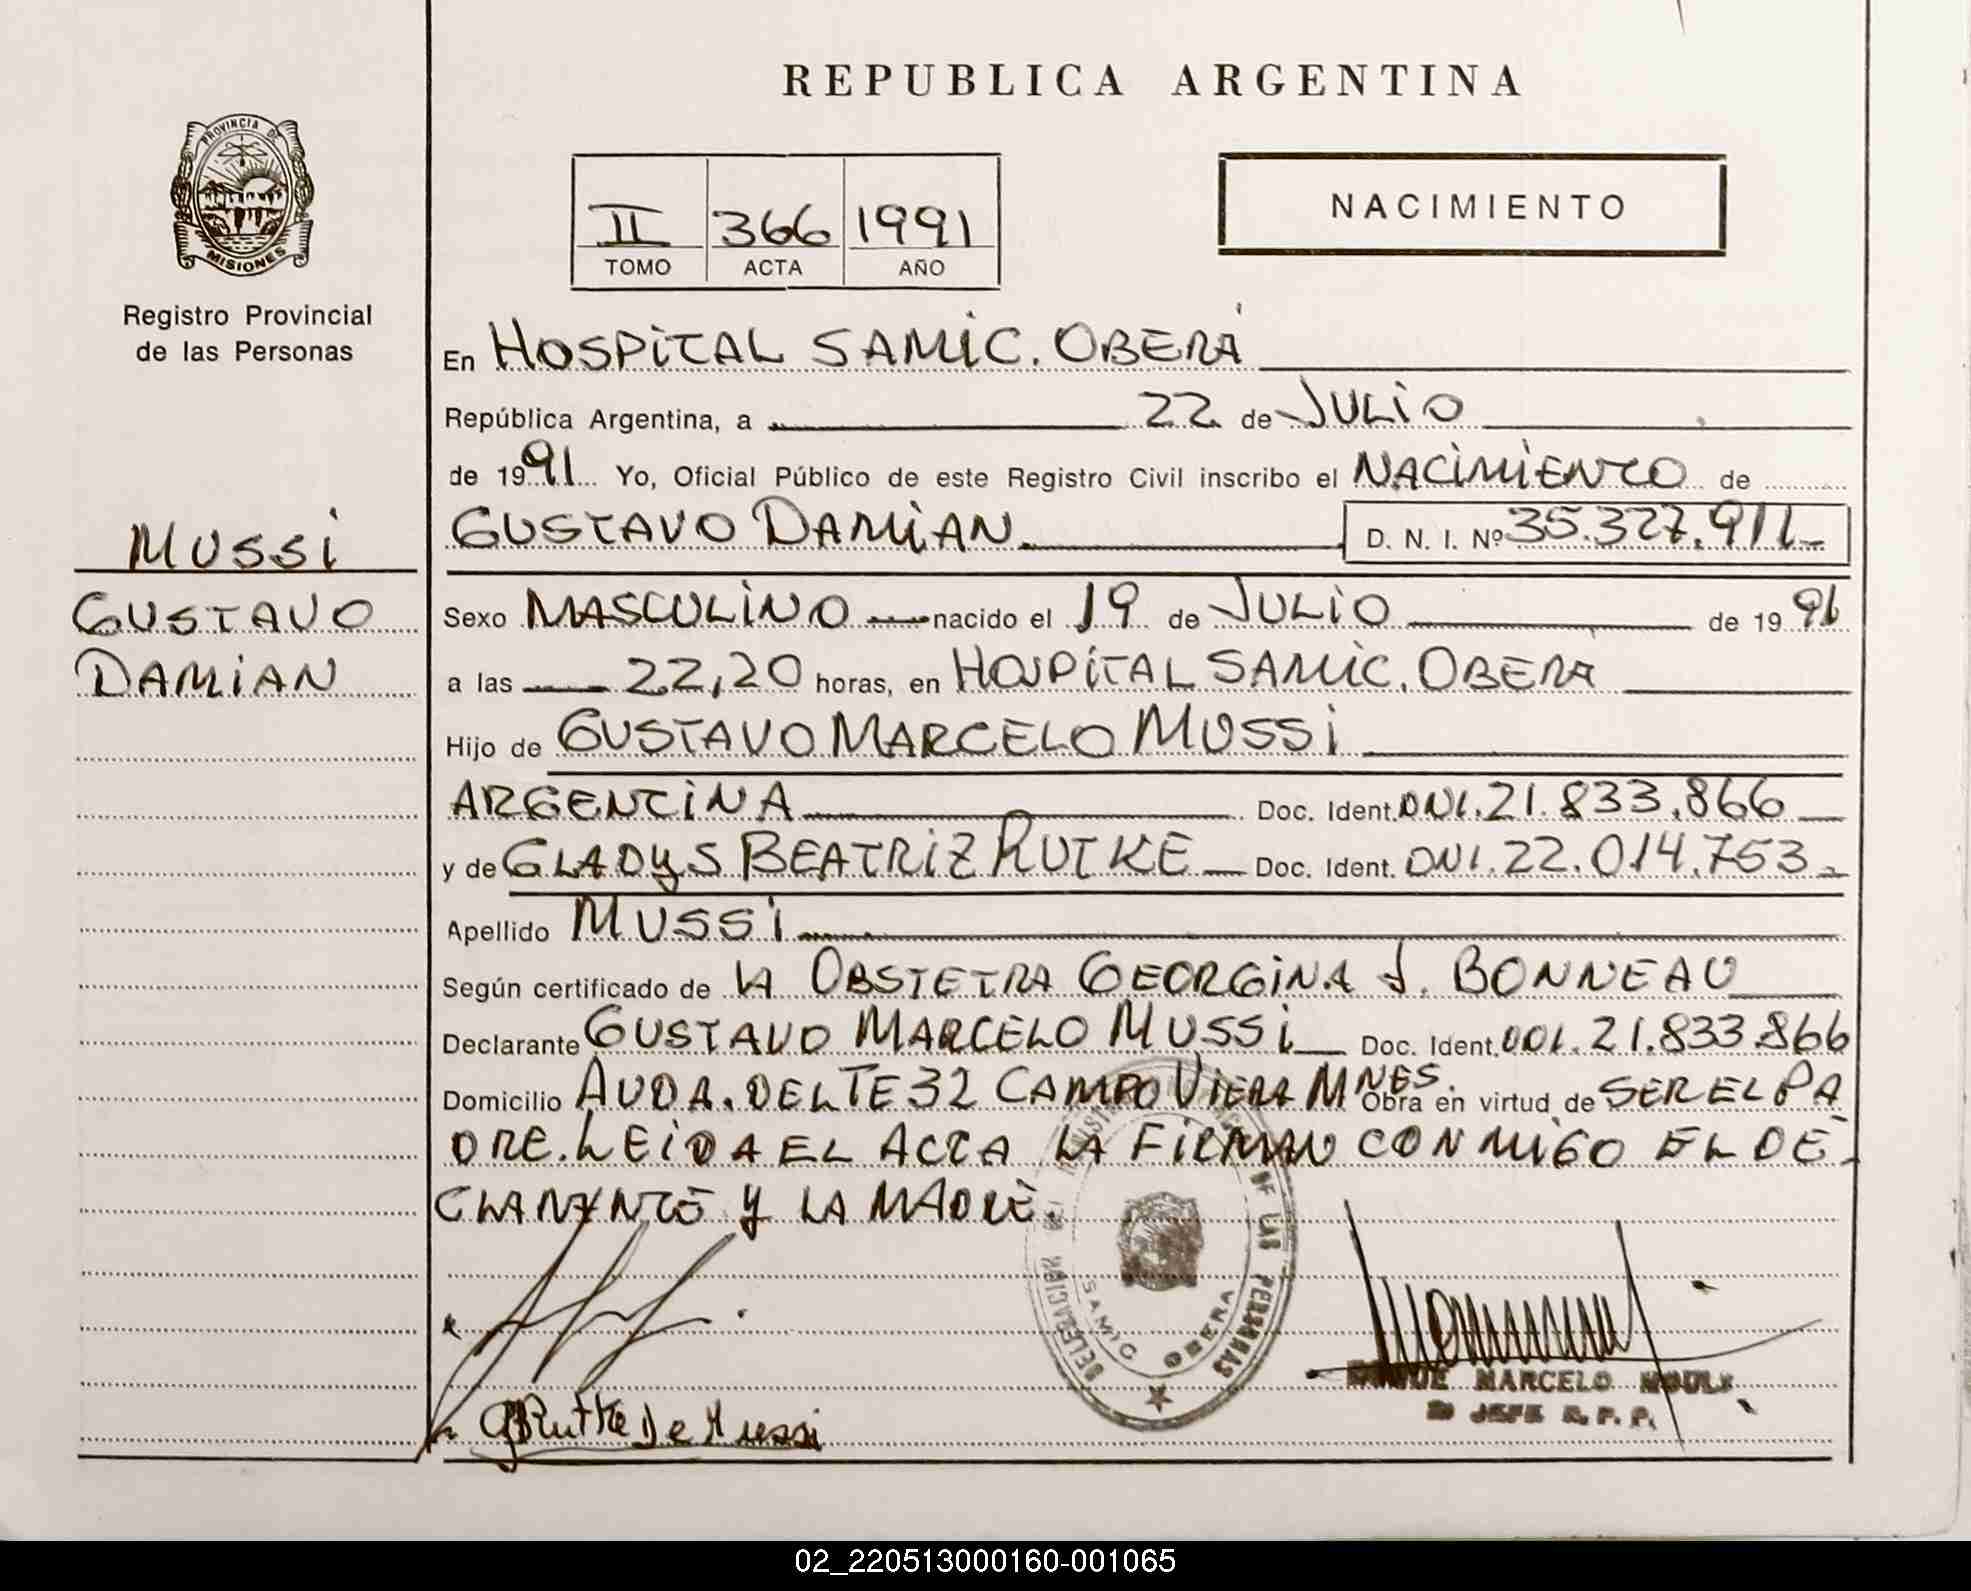 REPUBLICA ARGENTINA
PROVINCIA DE
MISIONES
Registro Provincial
de las Personas
II 366 1991
TOMO ACTA AÑO
NACIMIENTO
En HOSPITAL SAMIC. OBERÁ
República Argentina, a 22 de JULIO
de 1991 Yo, Oficial Público de este Registro Civil inscribo el NACIMIENTO de
MUSSI
GUSTAVO
DAMIAN
GUSTAVO DAMIAN D. N. I. Nº 35.327.911
Sexo MASCULINO nacido el 19 de JULIO de 1991
a las 22,20 horas, en HOSPITAL SAMIC. OBERA
Hijo de GUSTAVO MARCELO MUSSI
ARGENTINA Doc. Ident. DNI. 21.833.866
y de GLADYS BEATRIZ RUTKE Doc. Ident. DNI. 22.014.753
Apellido MUSSI
Según certificado de LA OBSTETRA GEORGINA J. BONNEAU
Declarante GUSTAVO MARCELO MUSSI Doc. Ident. DNI. 21.833.866
Domicilio AVDA. DEL TE 32 CAMPO VIERA MNES. Obra en virtud de SER EL PA
DRE. LEIDA EL ACTA LA FIRMAN CONMIGO EL DE
CLARANTE Y LA MADRE.
DE LAS PERSONAS
SAMIC OBERA
MARCELO
2º JEFE R. P. P.
Rutke De Mussi
02_220513000160-001065